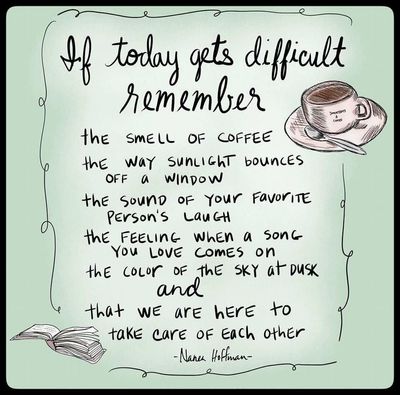 If today gets difficult
remember
the SMELL OF COFFEE
the WAY SUNLIGHT BOUNCES
OFF A WINDOW
the SOUND OF YOUR FAVORITE
PERSON'S LAUGH
the FEELING WHEN A SONG
YOU LOVE COMES ON
the COLOR OF THE SKY At DUSK
and
that WE ARE HERE to
take CARE OF EACH OTHER
-Nanea Hoffman-